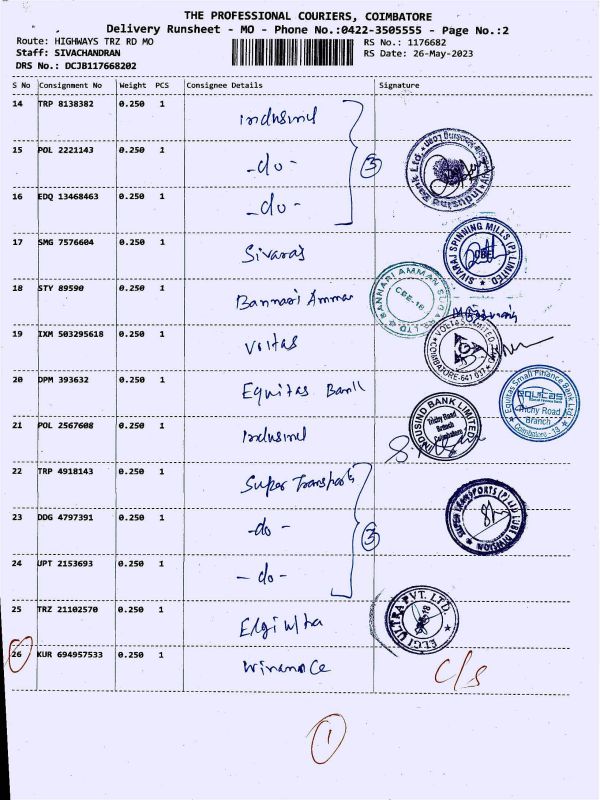 THE PROFESSIONAL COURIERS, COIMBATORE
Delivery Runsheet - MO - Phone No.:0422-3505555 - Page No.:2
Route: HIGHWAYS TRZ RD MO RS No.: 1176682
Staff: SIVACHANDRAN RS Date: 26-May-2023
DRS No.: DCJB117668202
S No Consignment No Weight PCS Consignee Details Signature
14 TRP 8138382 0.250 1 Indusind
15 POL 2221143 0.250 1 -do- 3
IndusInd Bank Ltd.
16 EDQ 13468463 0.250 1 -do-
17 SMG 7576604 0.250 1 Sivaraj
SIVARAJ SPINNING MILLS (P) LIMITED
18 STY 89590 0.250 1 Bannari Amman
BANNARI AMMAN SUGARS LTD
CBE-18
19 IXM 503295618 0.250 1 Voltas
VOLTAS LIMITED
COIMBATORE-641 037
20 DPM 393632 0.250 1 Equitas Bank
Equitas Small Finance Bank Ltd
equitas
Trichy Road
Branch
Coimbatore - 18
21 POL 2567608 0.250 1 Indusind
INDUSIND BANK LIMITED
Trichy Road
Branch
Coimbatore
22 TRP 4918143 0.250 1 Super Transports
23 DDG 4797391 0.250 1 -do- 3
SUPER TRANSPORTS (P) LTD LUBE DIVISION
24 UPT 2153693 0.250 1 -do-
25 TRZ 21102570 0.250 1 Elgi Ultra
ELGI ULTRA PVT. LTD.
26 KUR 694957533 0.250 1 C/s
1